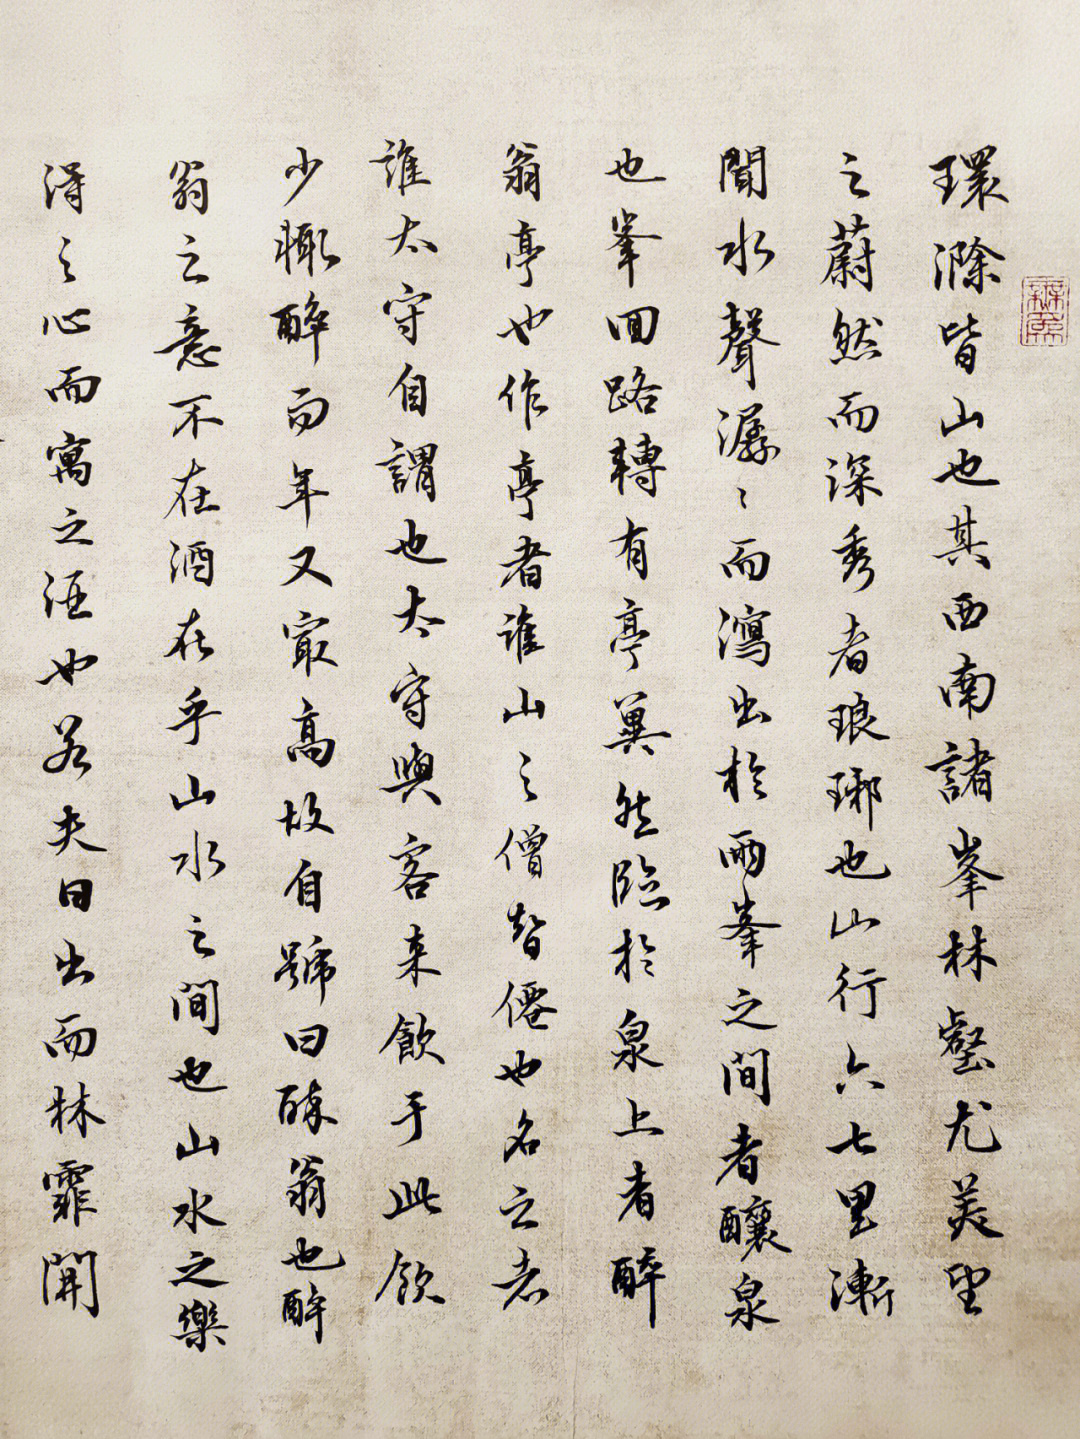 環滁皆山也其西南諸峯林壑尤美望
之蔚然而深秀者琅琊也山行六七里漸
聞水聲潺〻而瀉出於兩峯之間者釀泉
也峯回路轉有亭翼然臨於泉上者醉
翁亭也作亭者誰山之僧智僊也名之者
誰太守自謂也太守與客来飲于此飲
少輒醉而年又最高故自號曰醉翁也醉
翁之意不在酒在乎山水之間也山水之樂
得之心而寓之酒也若夫日出而林霏開